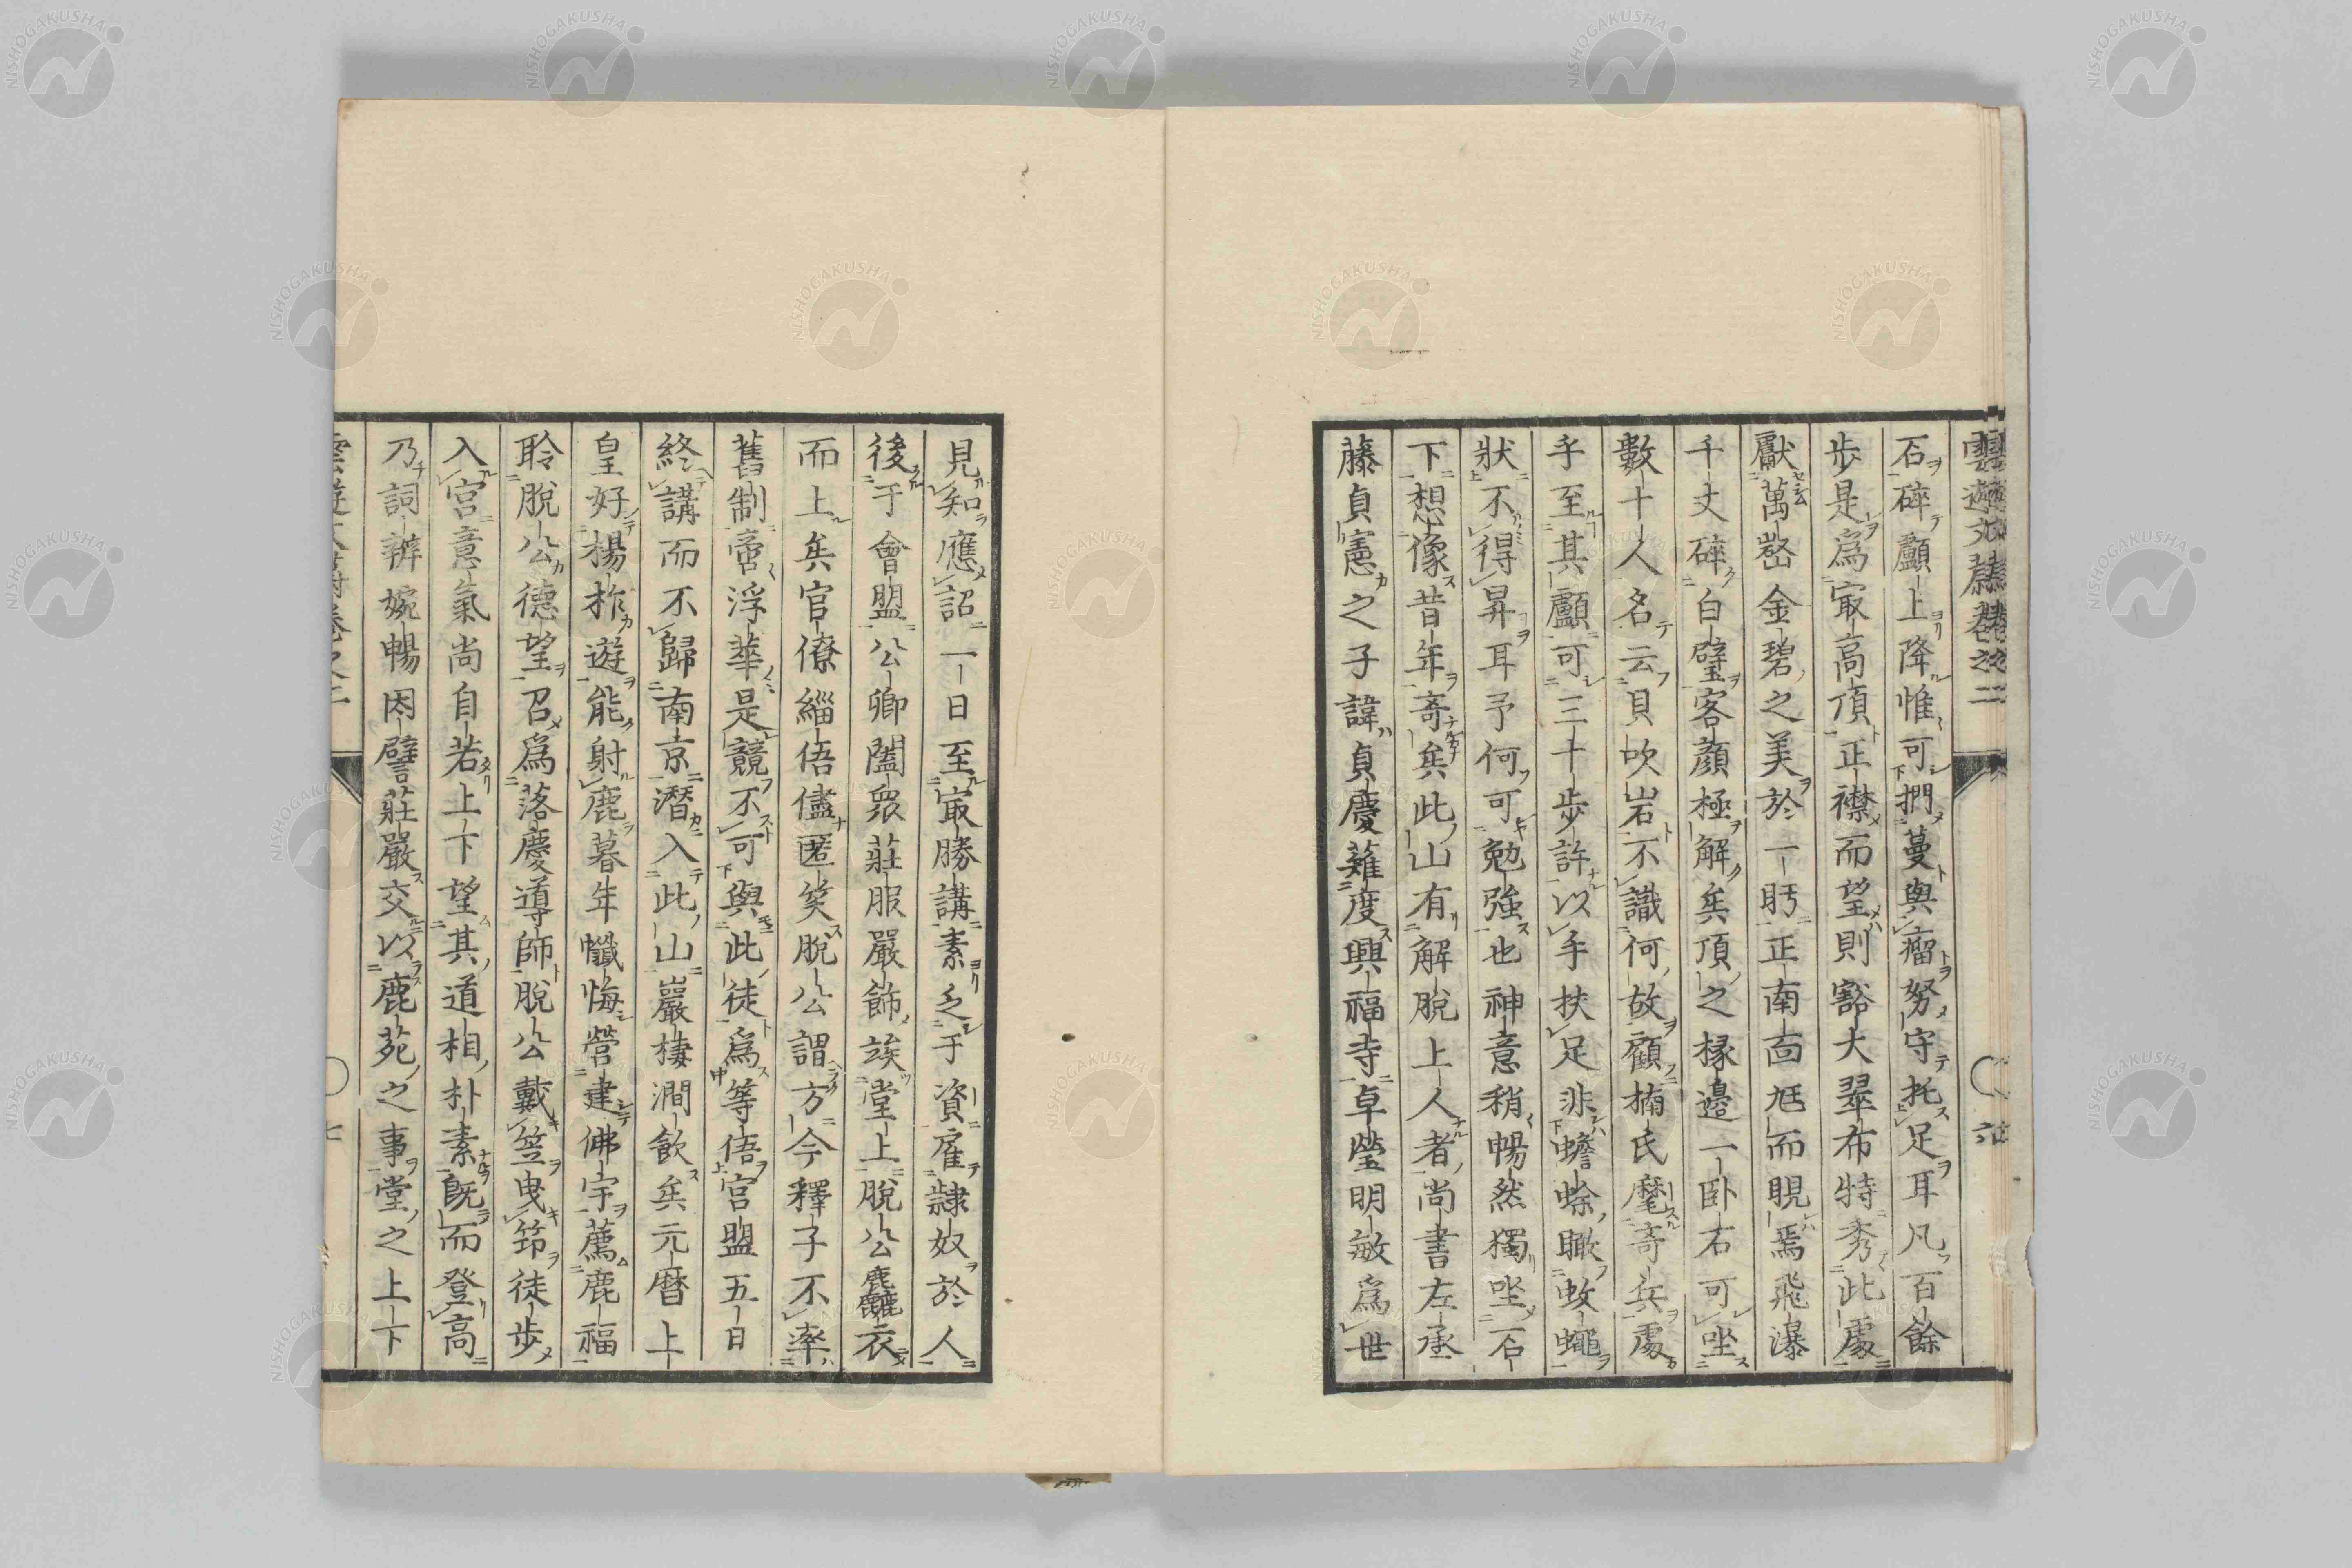 石碎顱上降惟可捫蔓與瘤努守托足耳凡百餘
步是爲㝡高頂正襟而望則豁大翠布特秀此處
獻萬壑金碧之美於一眄正南面尫而睍焉飛瀑
千丈碎白璧客顏極解矣頂之椽邊一卧石可坐
數十人名云貝吹岩不識何故顧楠氏麾奇兵處
乎至其顱可三十步許以手扶足非蟾蜍瞰蚊蠅
狀不得昇耳予何可勉強也神意稍暢然獨坐石
下想像昔年奇矣此山有解脫上人者尚書左丞
藤貞憲之子諱貞慶薙度興福寺卓瑩明敏爲世
見知應詔一日至㝡勝講素乏于資雇隷奴於人
後于會盟公卿闔衆莊服嚴飾竢堂上脫公麁衣
而上矣官僚緇侶儘匿笑脫公謂方今釋子不率
舊制啻浮華是競不可與此徒爲等侶宮盟五日
終講而不歸南京潛入此山巖棲澗飲矣元曆上
皇好楊柞遊能射鹿暮年懺悔營建佛宇薦鹿福
聆脫公德望召爲落慶導師脫公戴笠曳筇徒步
入宮意氣尚自若上下望其道相朴素既而登高
乃詞辨婉暢因譬莊嚴交以鹿苑之事堂之上下